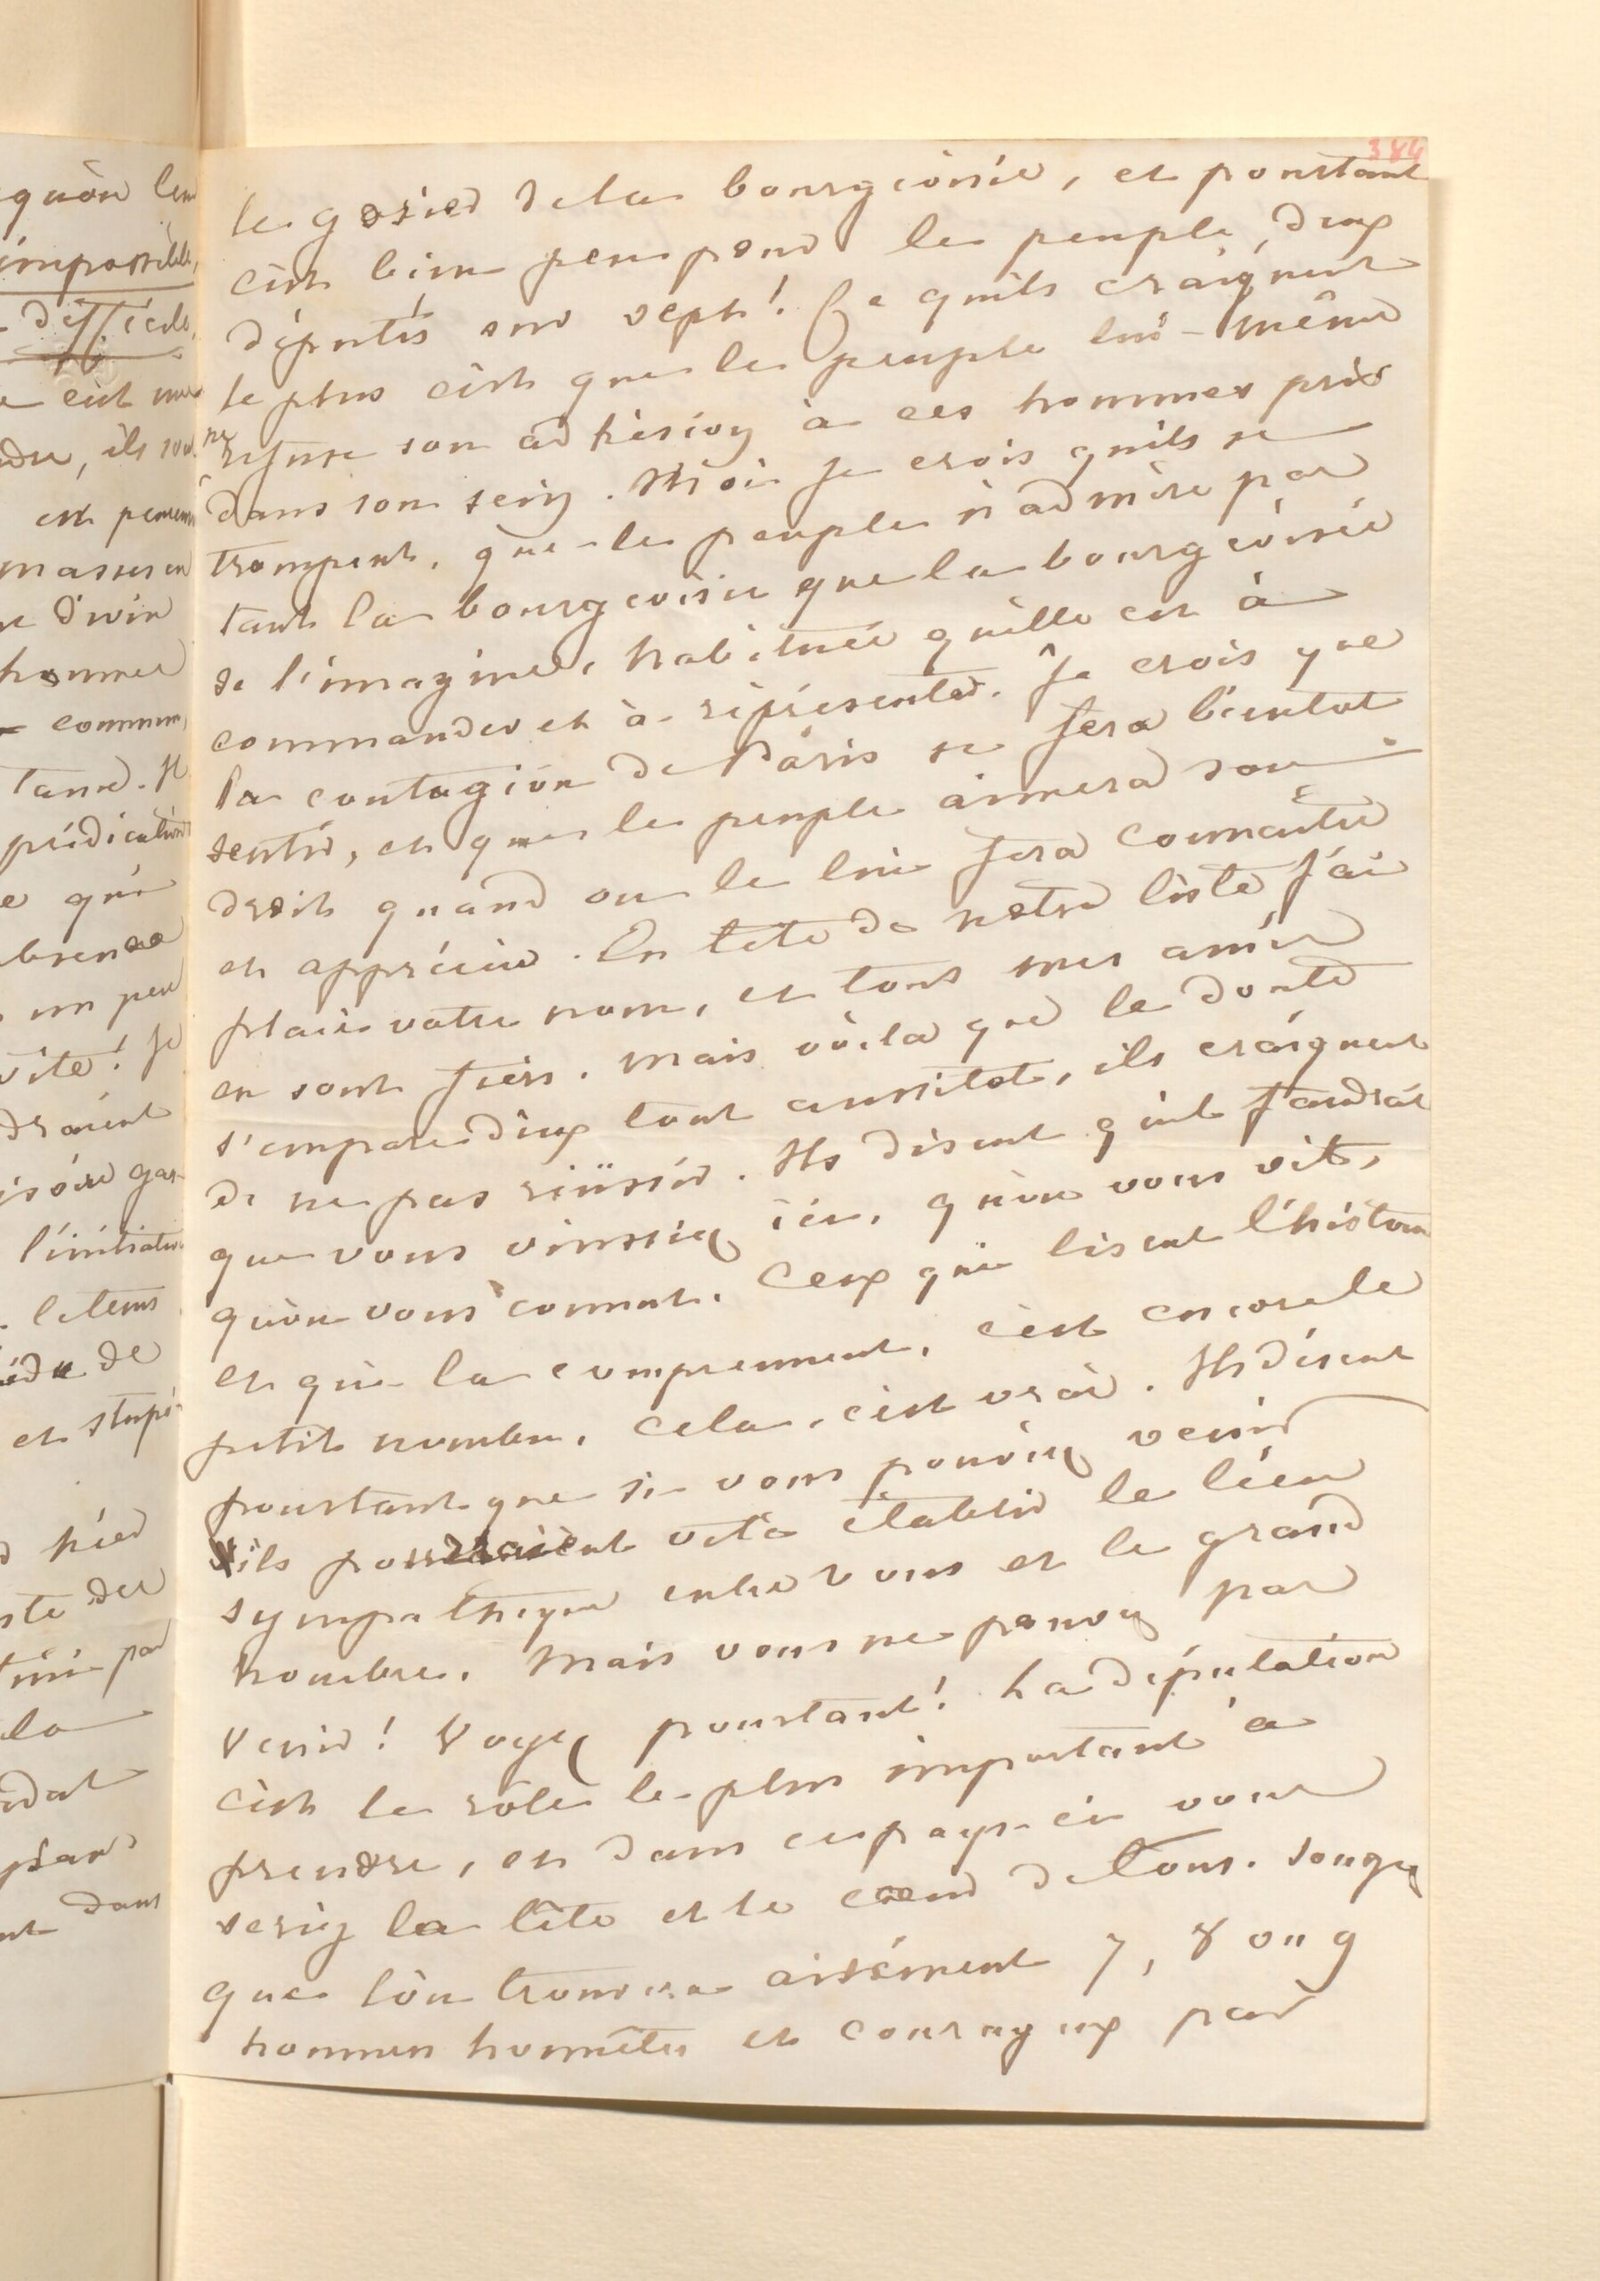 384
le gosier de la bourgeoisie, et pourtant
c'est bien peu pour le peuple, deux
députés sur sept! Ce qu'ils craignent
le plus c'est que le peuple lui-même
ne refuse son adhésion à ces hommes pris
dans son sein. Moi je crois qu'ils se
trompent, que le peuple n'admire pas
tant la bourgeoisie que la bourgeoisie
se l'imagine, habituée qu'elle est à
commander et à représenter. Je crois que
la contagion de Paris se fera bientot
sentir, et que le peuple aimera son
droit quand on le lui fera connaitre
et apprécier. En tete de notre liste j'ai
placé votre nom, et tous mes amis
en sont fiers. Mais voila que le doute
s'empare d'eux tout aussitot, ils craignent
de ne pas réussir. Ils disent qu'il faudrait
que vous vinssiez ici, qu'on vous vit,
qu'on vous connut. Ceux qui lisent l'histoire
et qui la comprennent, c'est encore le
petit nombre. Cela, c'est vrai. Ils disent
pourtant que si vous pouviez venir
ils pourraient vite établir le lien
sympathique entre vous et le grand
nombre. Mais vous ne pouvez pas
venir! Voyez pourtant! La députation
c'est le rôle le plus important à
prendre, et dans ce pays-ci vous
seriez la tête et le cœur de tous. Songez
que l'on trouvera aisément 7, 8 ou 9
hommes honnêtes et courageux par
qu'on
impossible,
difficile,
c'est une
ils sont
est
masses
divin
hommes
commun,
Je
prédication
qui
un peu
vite! Je
l'initiative
le tems
de
et
hier
des
par
la
dans